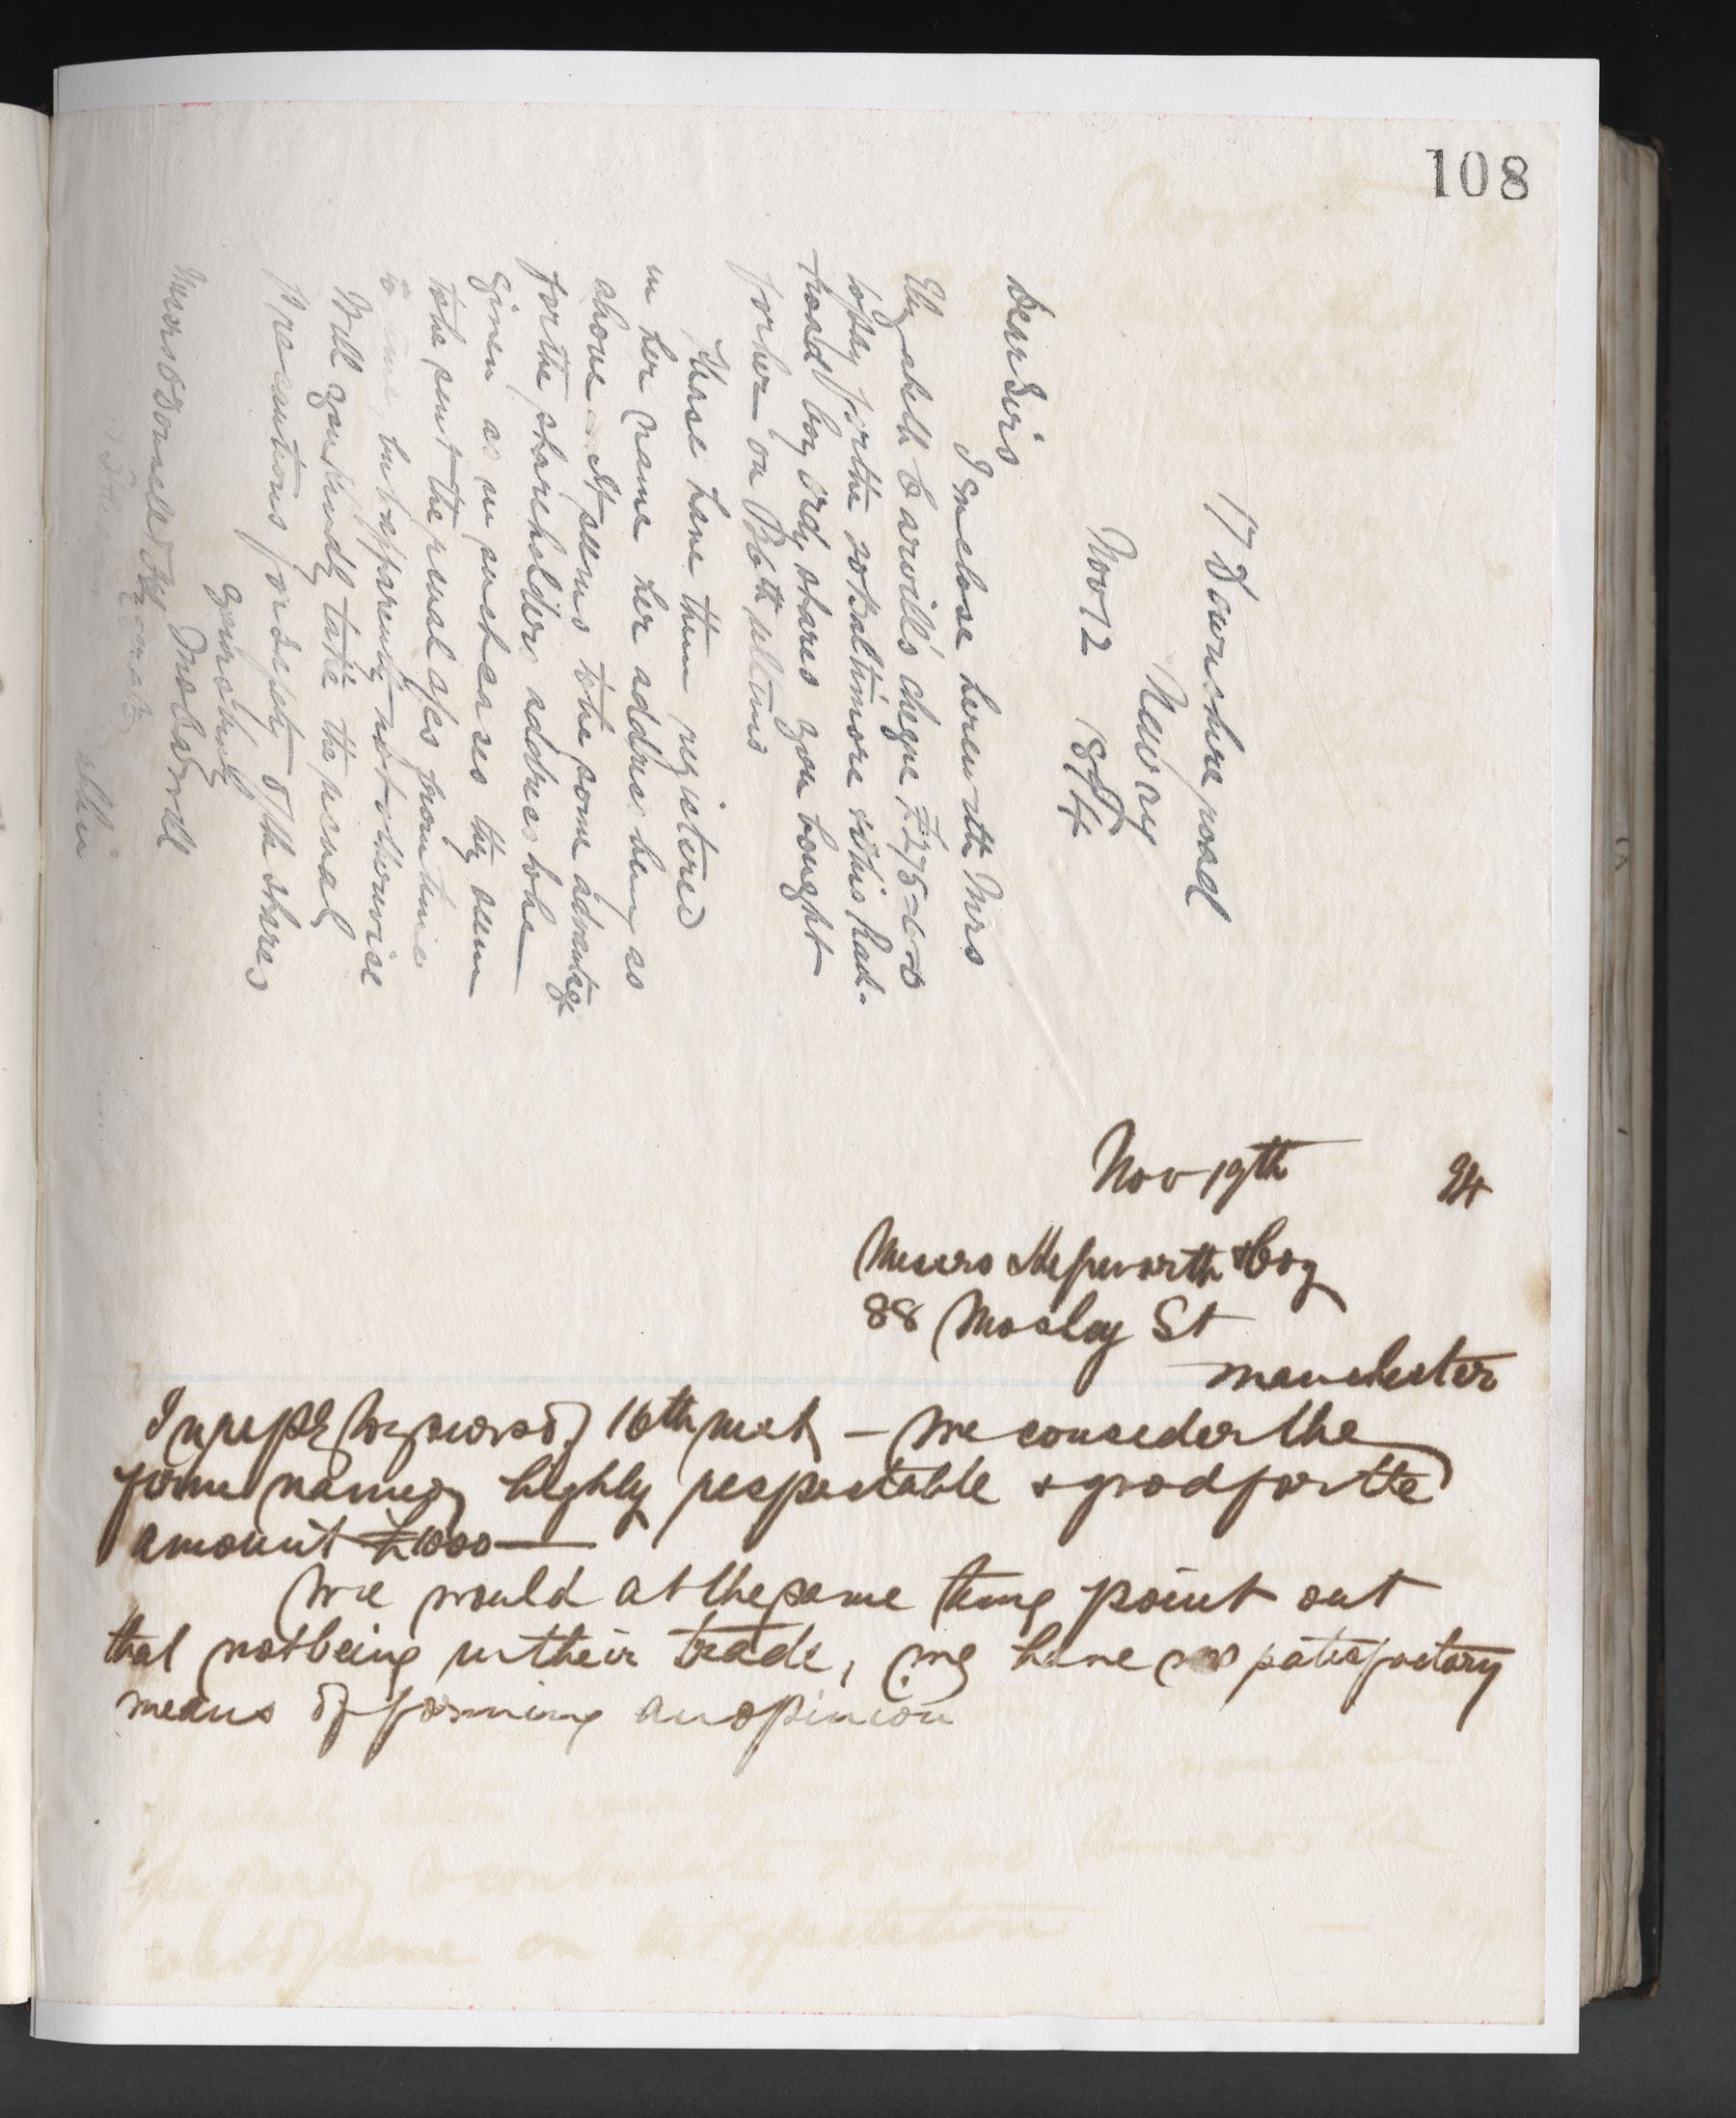 108
17 Downshire road
Newry
Nov 12 1894
Dear Sirs
I enclose herewith Mrs
Elizabeth Carvill's cheque £275-6-0
to pay for the 20 Baltimore & Ohio Rail-
road Coy ordy shares you bought
for her on 26th ultimo
Please have them registered
in her name her address being as
above It seems to be some advantage
for the shareholders address to be
given as in such cases they seem
to be sent the usual a/cs from time
to time, but apparently not otherwise
Will you kindly take the usual
precautions for safety of the shares
yours truly
Messrs O'Donnell & Fitzgerald
Dublin
Nov 19th 94
Messrs Hepworth & Coy
88 Mosley St
Manchester
In reply to yours of 16th inst - We consider the
firm named highly respectable & good for the
amount £1000
We would at the same time point out
that not being in their trade, we have no satisfactory
means of forming an opinion